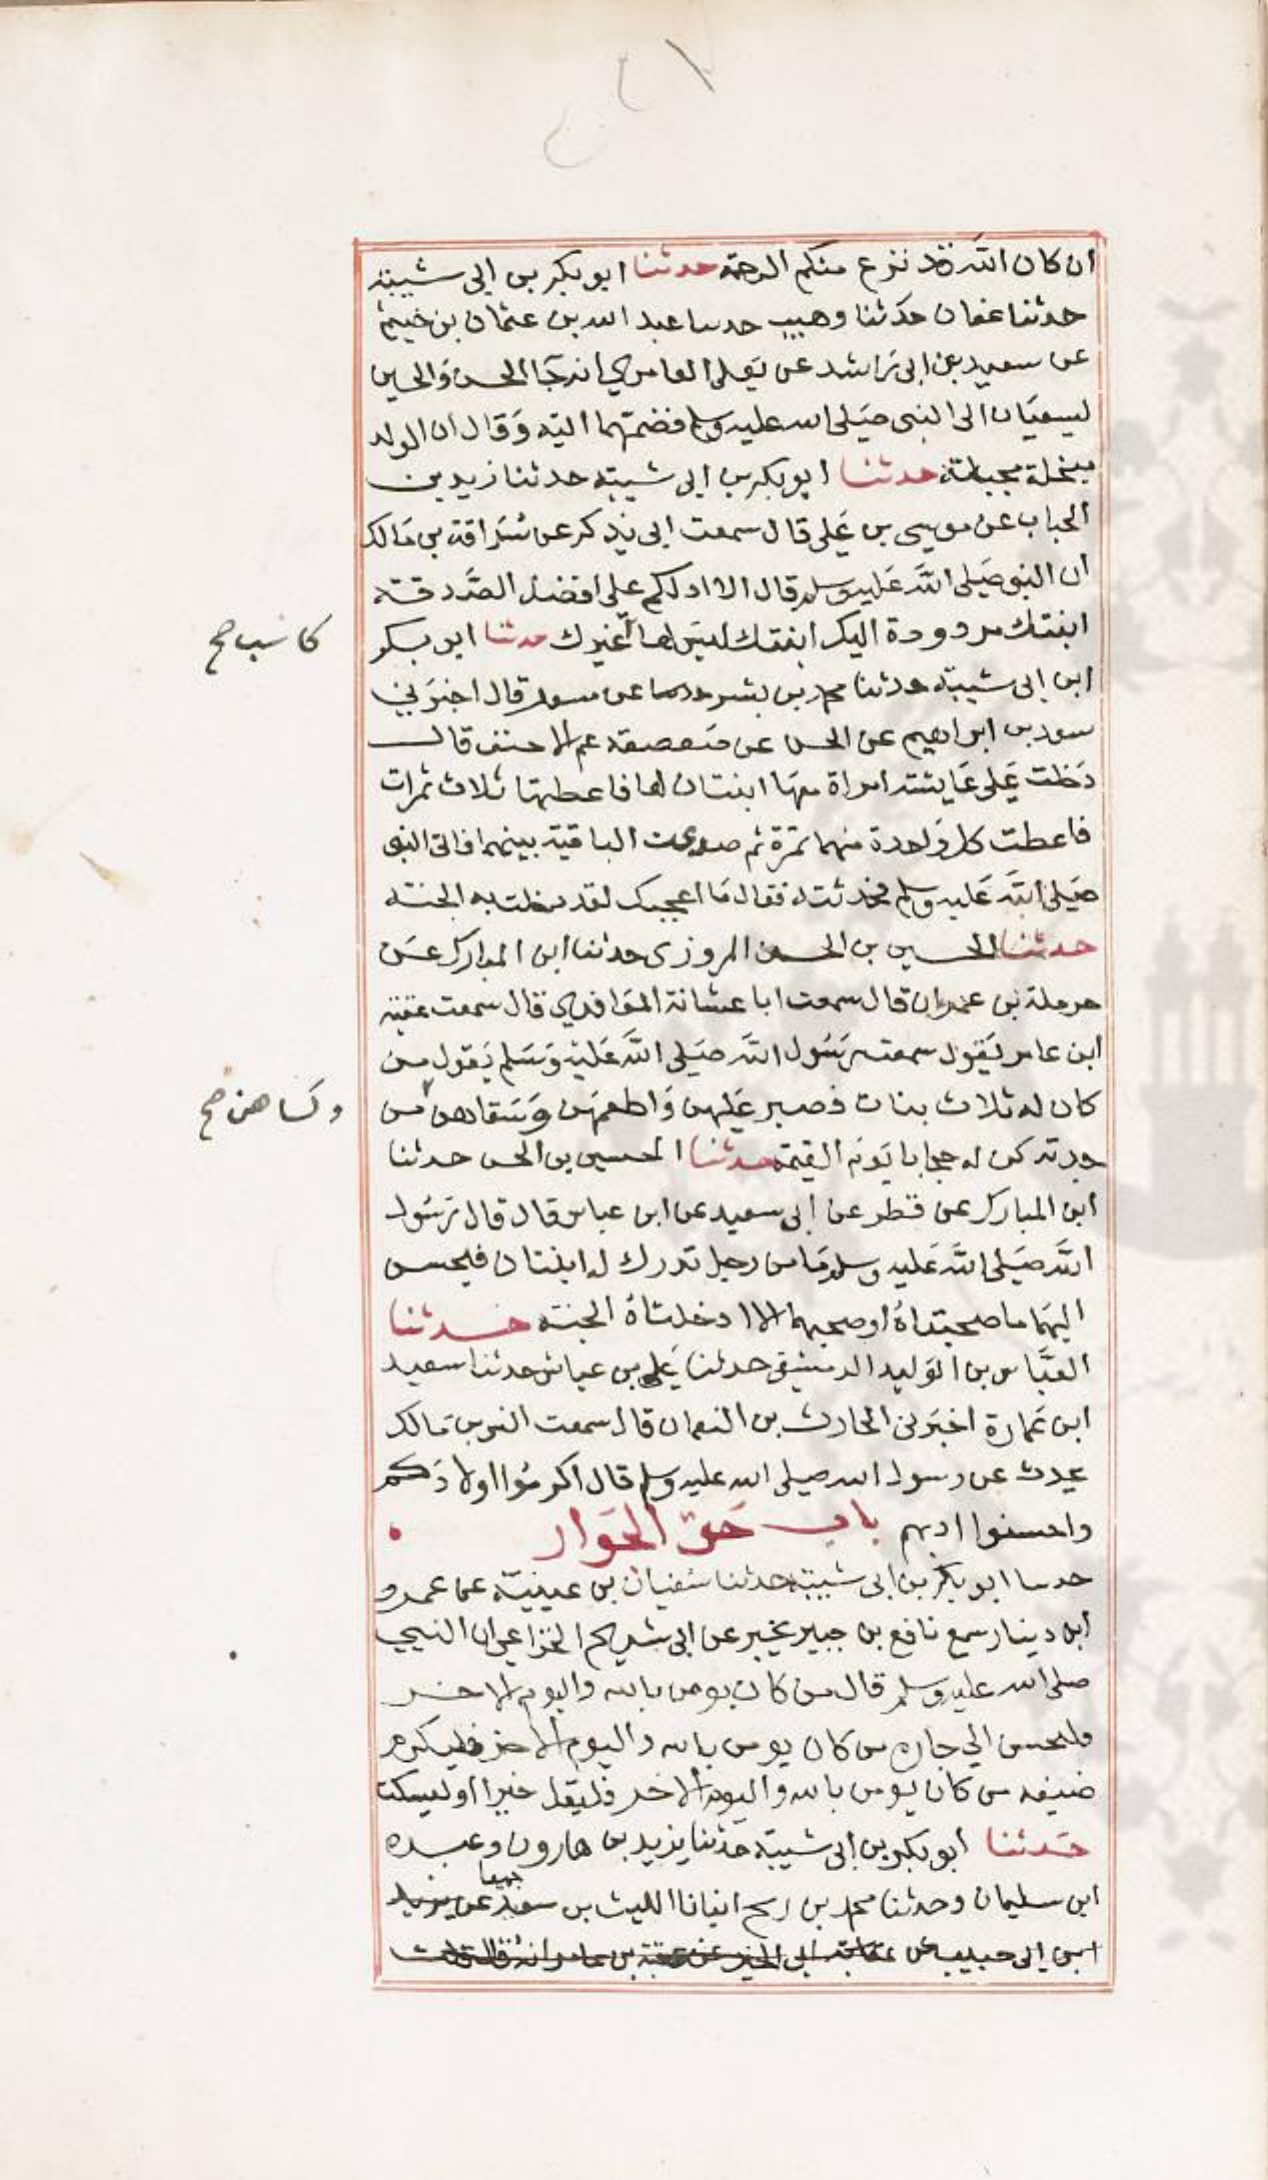 ان كان الله قد نزع منكم الرحمة حدثنا ابو بكر بن ابي شيبة
حدثنا عفان حدثنا وهيب حدثنا عبد الله بن عثمان بن خيثم
عن سعيد بن ابي راشد عن يعلى العامري انه جا الحسن والحسين
ليسعيان الى النبي صلى الله عليه وسلم فضمهما اليه وقال ان الولد
مبخلة مجبنة حدثنا ابو بكر بن ابي شيبة حدثنا زيد بن
الحباب عن موسى بن علي قال سمعت ابي يذكر عن سراقة بن مالك
ان النبي صلى الله عليه وسلم قال الا ادلكم على افضل الصدقة
ابنتك مردودة اليك ابنتك ليس لها غيرك حدثنا ابو بكر
كاسب صح
ابن ابي شيبة حدثنا محمد بن بشر عن مسعر قال اخبرني
سعد بن ابراهيم عن الحسن عن صعصعة عم الاحنف قال
دخلت على عايشة امراة معها ابنتان لها فاعطتها ثلاث تمرات
فاعطت كل واحدة منهما تمرة ثم صدعت الباقية بينهما فاتى النبي
صلى الله عليه وسلم فحدثته فقال ما اعجبك لقد دخلت به الجنة
حدثنا الحسين بن الحسن المروزي حدثنا ابن المبارك عن
حرملة بن عمران قال سمعت ابا عشانة المعافري قال سمعت عقبة
ابن عامر يقول سمعت رسول الله صلى الله عليه وسلم يقول من
كان له ثلاث بنات فصبر عليهن واطعمهن وسقاهن من
وكساهن صح
جدته كن له حجابا يوم القيمة حدثنا الحسين بن الحسن حدثنا
ابن المبارك عن فطر عن ابي سعيد عن ابن عباس قال قال رسول
الله صلى الله عليه وسلم ما من رجل تدرك له ابنتان فيحسن
اليهما ما صحبتاه او صحبهما الا ادخلتاه الجنة حدثنا
العباس بن الوليد الدمشقي حدثنا علي بن عياش حدثنا سعيد
ابن عمارة اخبرني الحارث بن النعمان قال سمعت انس بن مالك
يحدث عن رسول الله صلى الله عليه وسلم قال اكرموا اولادكم
واحسنوا ادبهم باب حق الجوار
حدثنا ابو بكر بن ابي شيبة حدثنا سفيان بن عيينة عن عمرو
ابن دينار سمع نافع بن جبير يخبر عن ابي شريح الخزاعي ان النبي
صلى الله عليه وسلم قال من كان يومن بالله واليوم الاخر
فليحسن الي جاره من كان يومن بالله واليوم الاخر فليكرم
ضيفه من كان يومن بالله واليوم الاخر فليقل خيرا او ليسكت
حدثنا ابو بكر بن ابي شيبة حدثنا يزيد بن هارون وعبده
ابن سليمان وحدثنا محمد بن رمح انبانا الليث بن سعد جميعا عن يزيد
ابن ابي حبيب عن ابي الخير عن عقبة بن عامر انه قال قلت